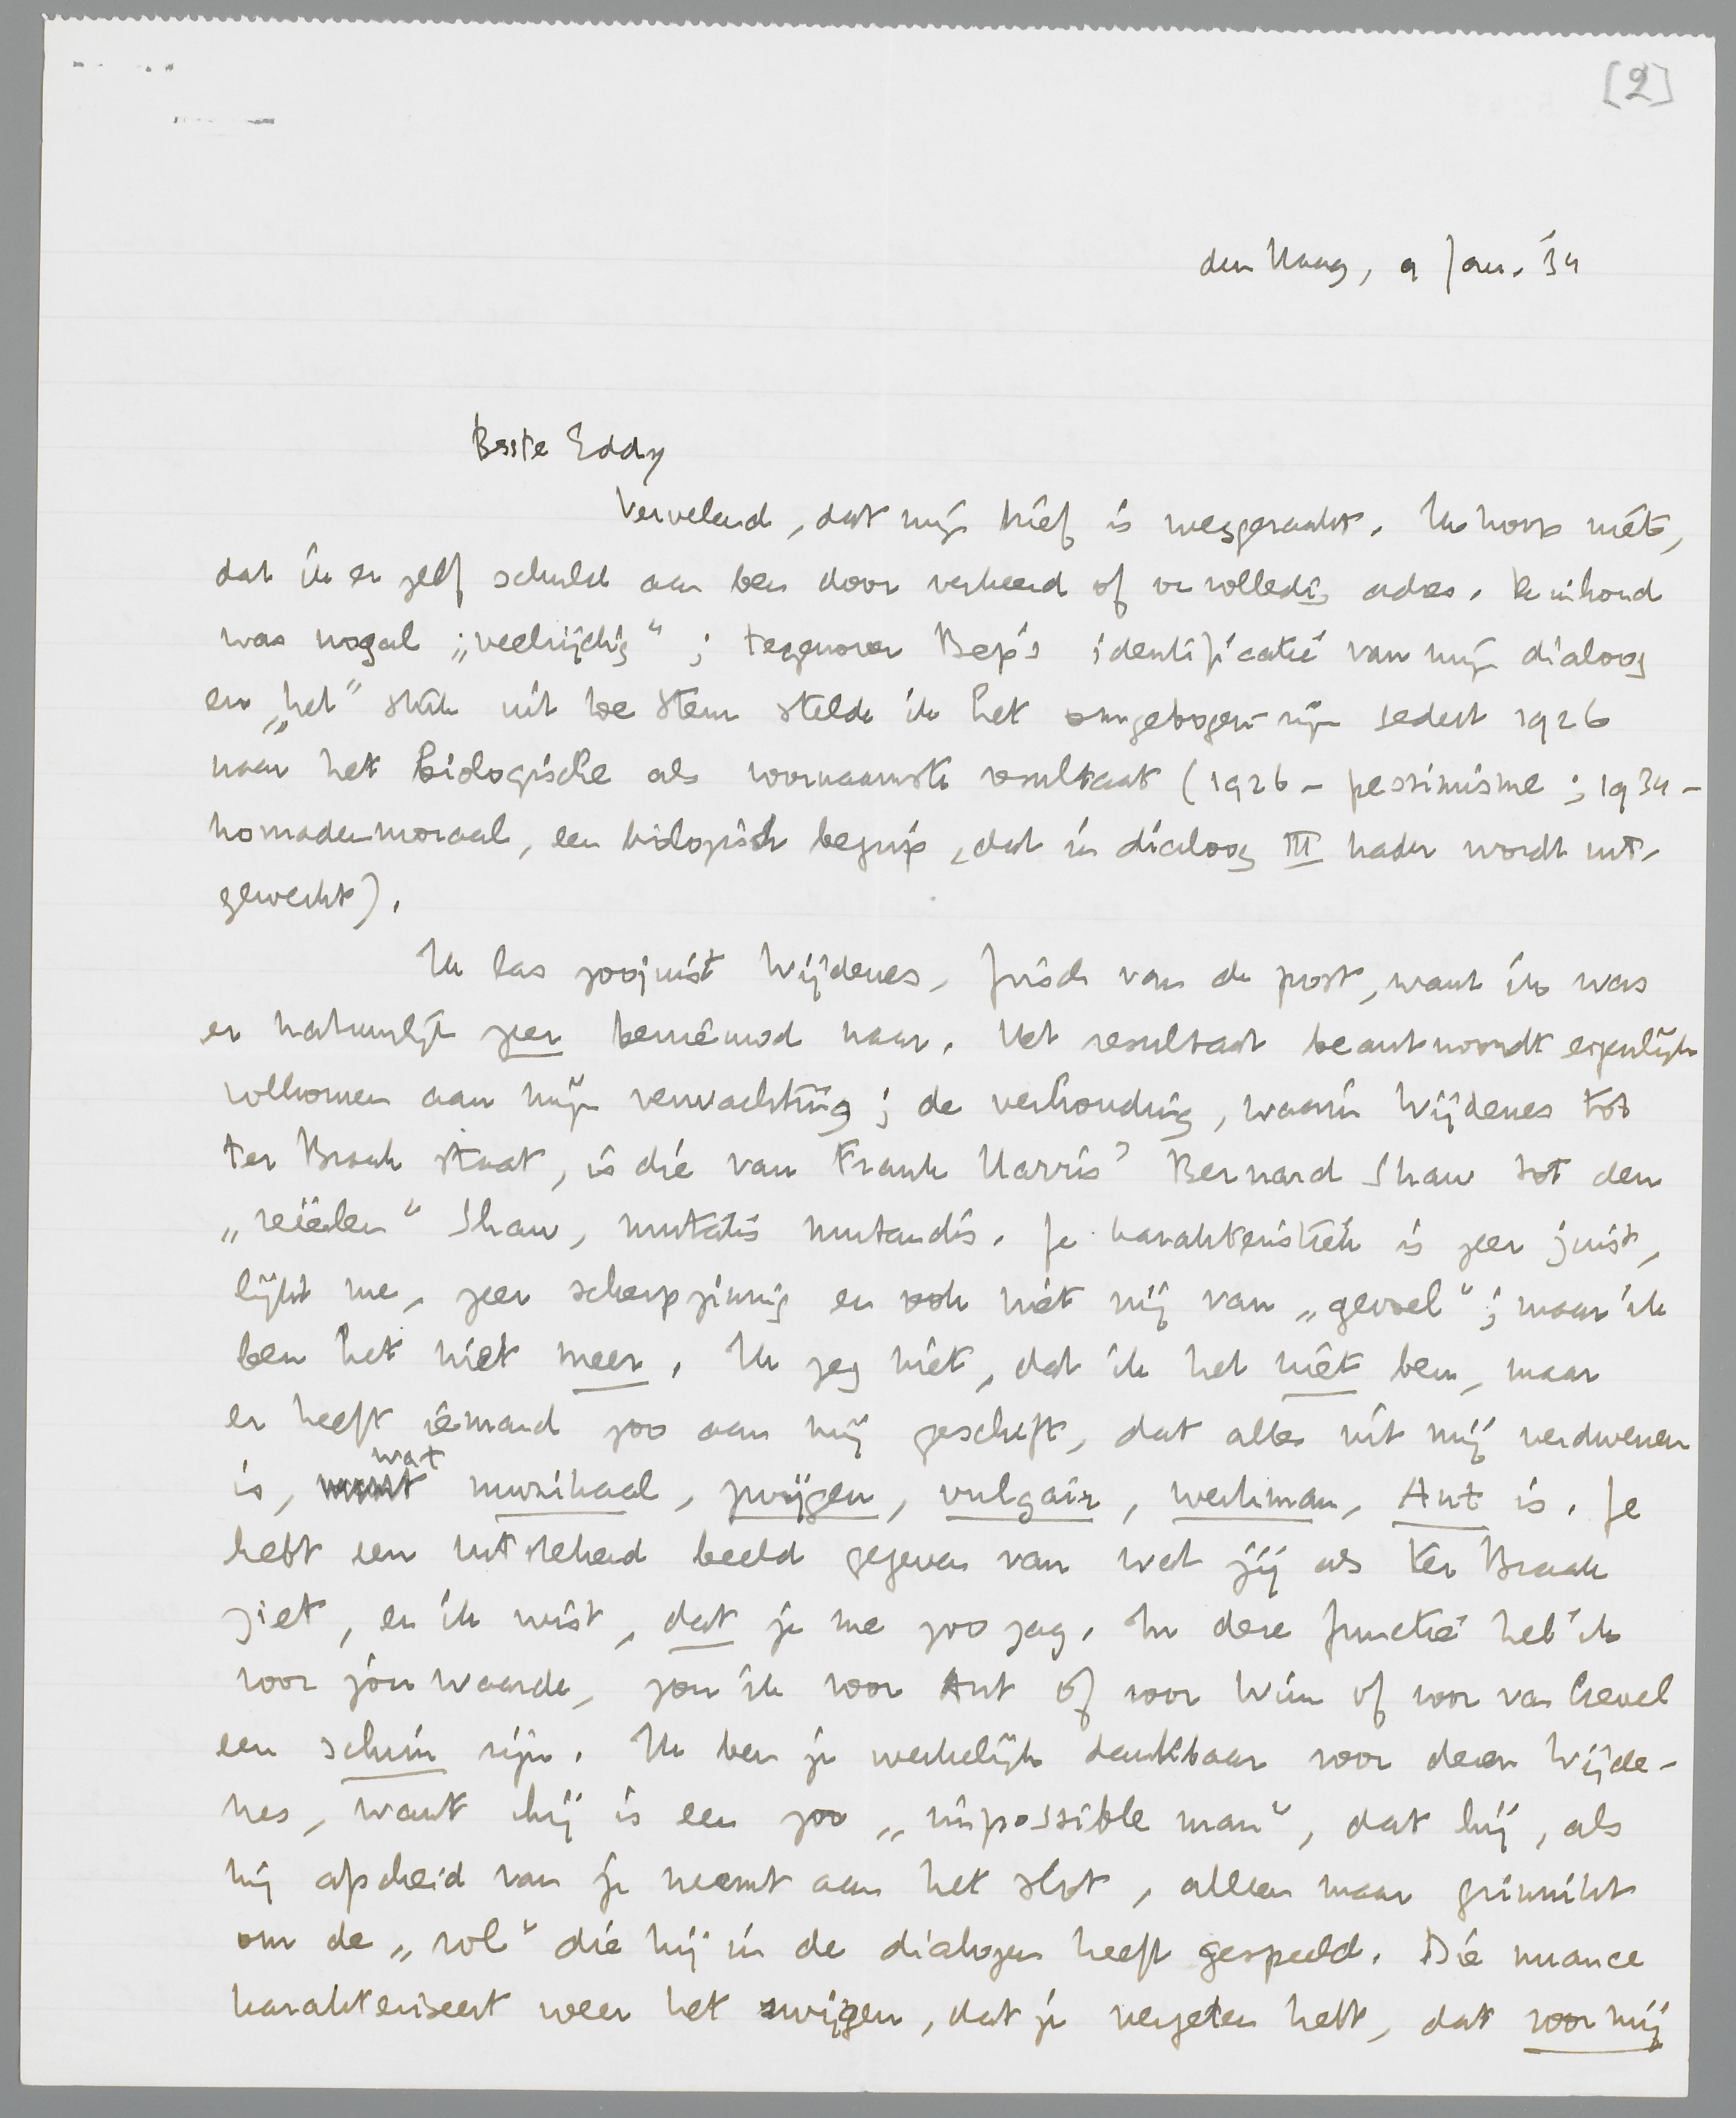 [2]
den Haag, 9 Jan. '34
Beste Eddy
Vervelend, dat mijn brief is weggeraakt. Ik hoop niet,
dat ik er zelf schuld aan ben door verkeerd of onvolledig adres. De inhoud
was nogal „veelzijdig"; tegenover Bep's identificatie van mijn dialoog
en „het" stuk uit De Stem stelde ik het omgebogen-zijn sedert 1926
naar het biologische als voornaamste resultaat (1926 - pessimisme; 1934 -
nomadenmoraal, een biologisch begrip, dat in dialoog III nader wordt uit-
gewerkt).
Ik las zoojuist Wijdenes, frisch van de post, want ik was
er natuurlijk zeer benieuwd naar. Het resultaat beantwoordt eigenlijk
volkomen aan mijn verwachting; de verhouding, waarin Wijdenes tot
ter Braak staat, is die van Frank Harris' Bernard Shaw tot den
„reëelen" Shaw, mutatis mutandis. Je karakteristiek is zeer juist,
lijkt me, zeer scherpzinnig en ook niet vrij van „gevoel"; maar ik
ben het niet meer. Ik zeg niet, dat ik het niet ben, maar
er heeft iemand zoo aan mij geschift, dat alles uit mij verdwenen
is, wat muzikaal, zwijgen, vulgair, werkman, Ant is. Je
hebt een uitstekend beeld gegeven van wat jij als ter Braak
ziet, en ik wist, dat je me zoo zag. In deze functie heb ik
voor jóu waarde, zou ik voor Ant of voor Wim of voor van Crevel
een schim zijn. Ik ben je werkelijk dankbaar voor dezen Wijde-
nes, want hij is een zoo „impossible man", dat hij, als
hij afscheid van je neemt aan het slot, alleen maar grinnikt
om de „rol" die hij in de dialogen heeft gespeeld. Die nuance
karakteriseert weer het zwijgen, dat je vergeten hebt, dat voor mij